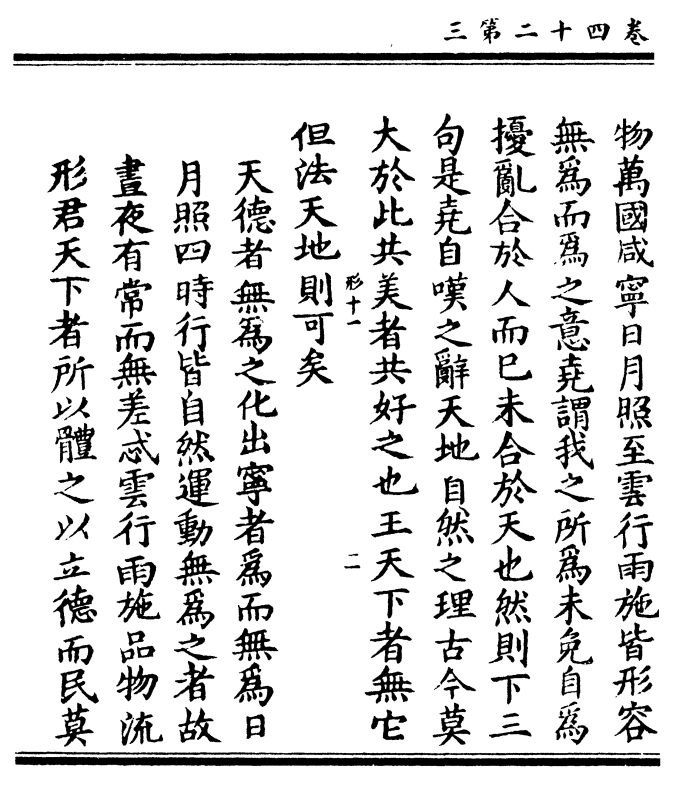 卷四十二第三
物萬國咸寧日月照至雲行雨施皆形容
無爲而爲之意堯謂我之所爲未免自爲
擾亂合於人而巳未合於天也然則下三
句是堯自嘆之辭天地自然之理古今莫
大於此共美者共好之也王天下者無它
但法天地則可矣
形十一
二
天德者無爲之化出寧者爲而無爲日
月照四時行皆自然運動無爲之者故
晝夜有常而無差忒雲行雨施品物流
形君天下者所以體之以立德而民莫